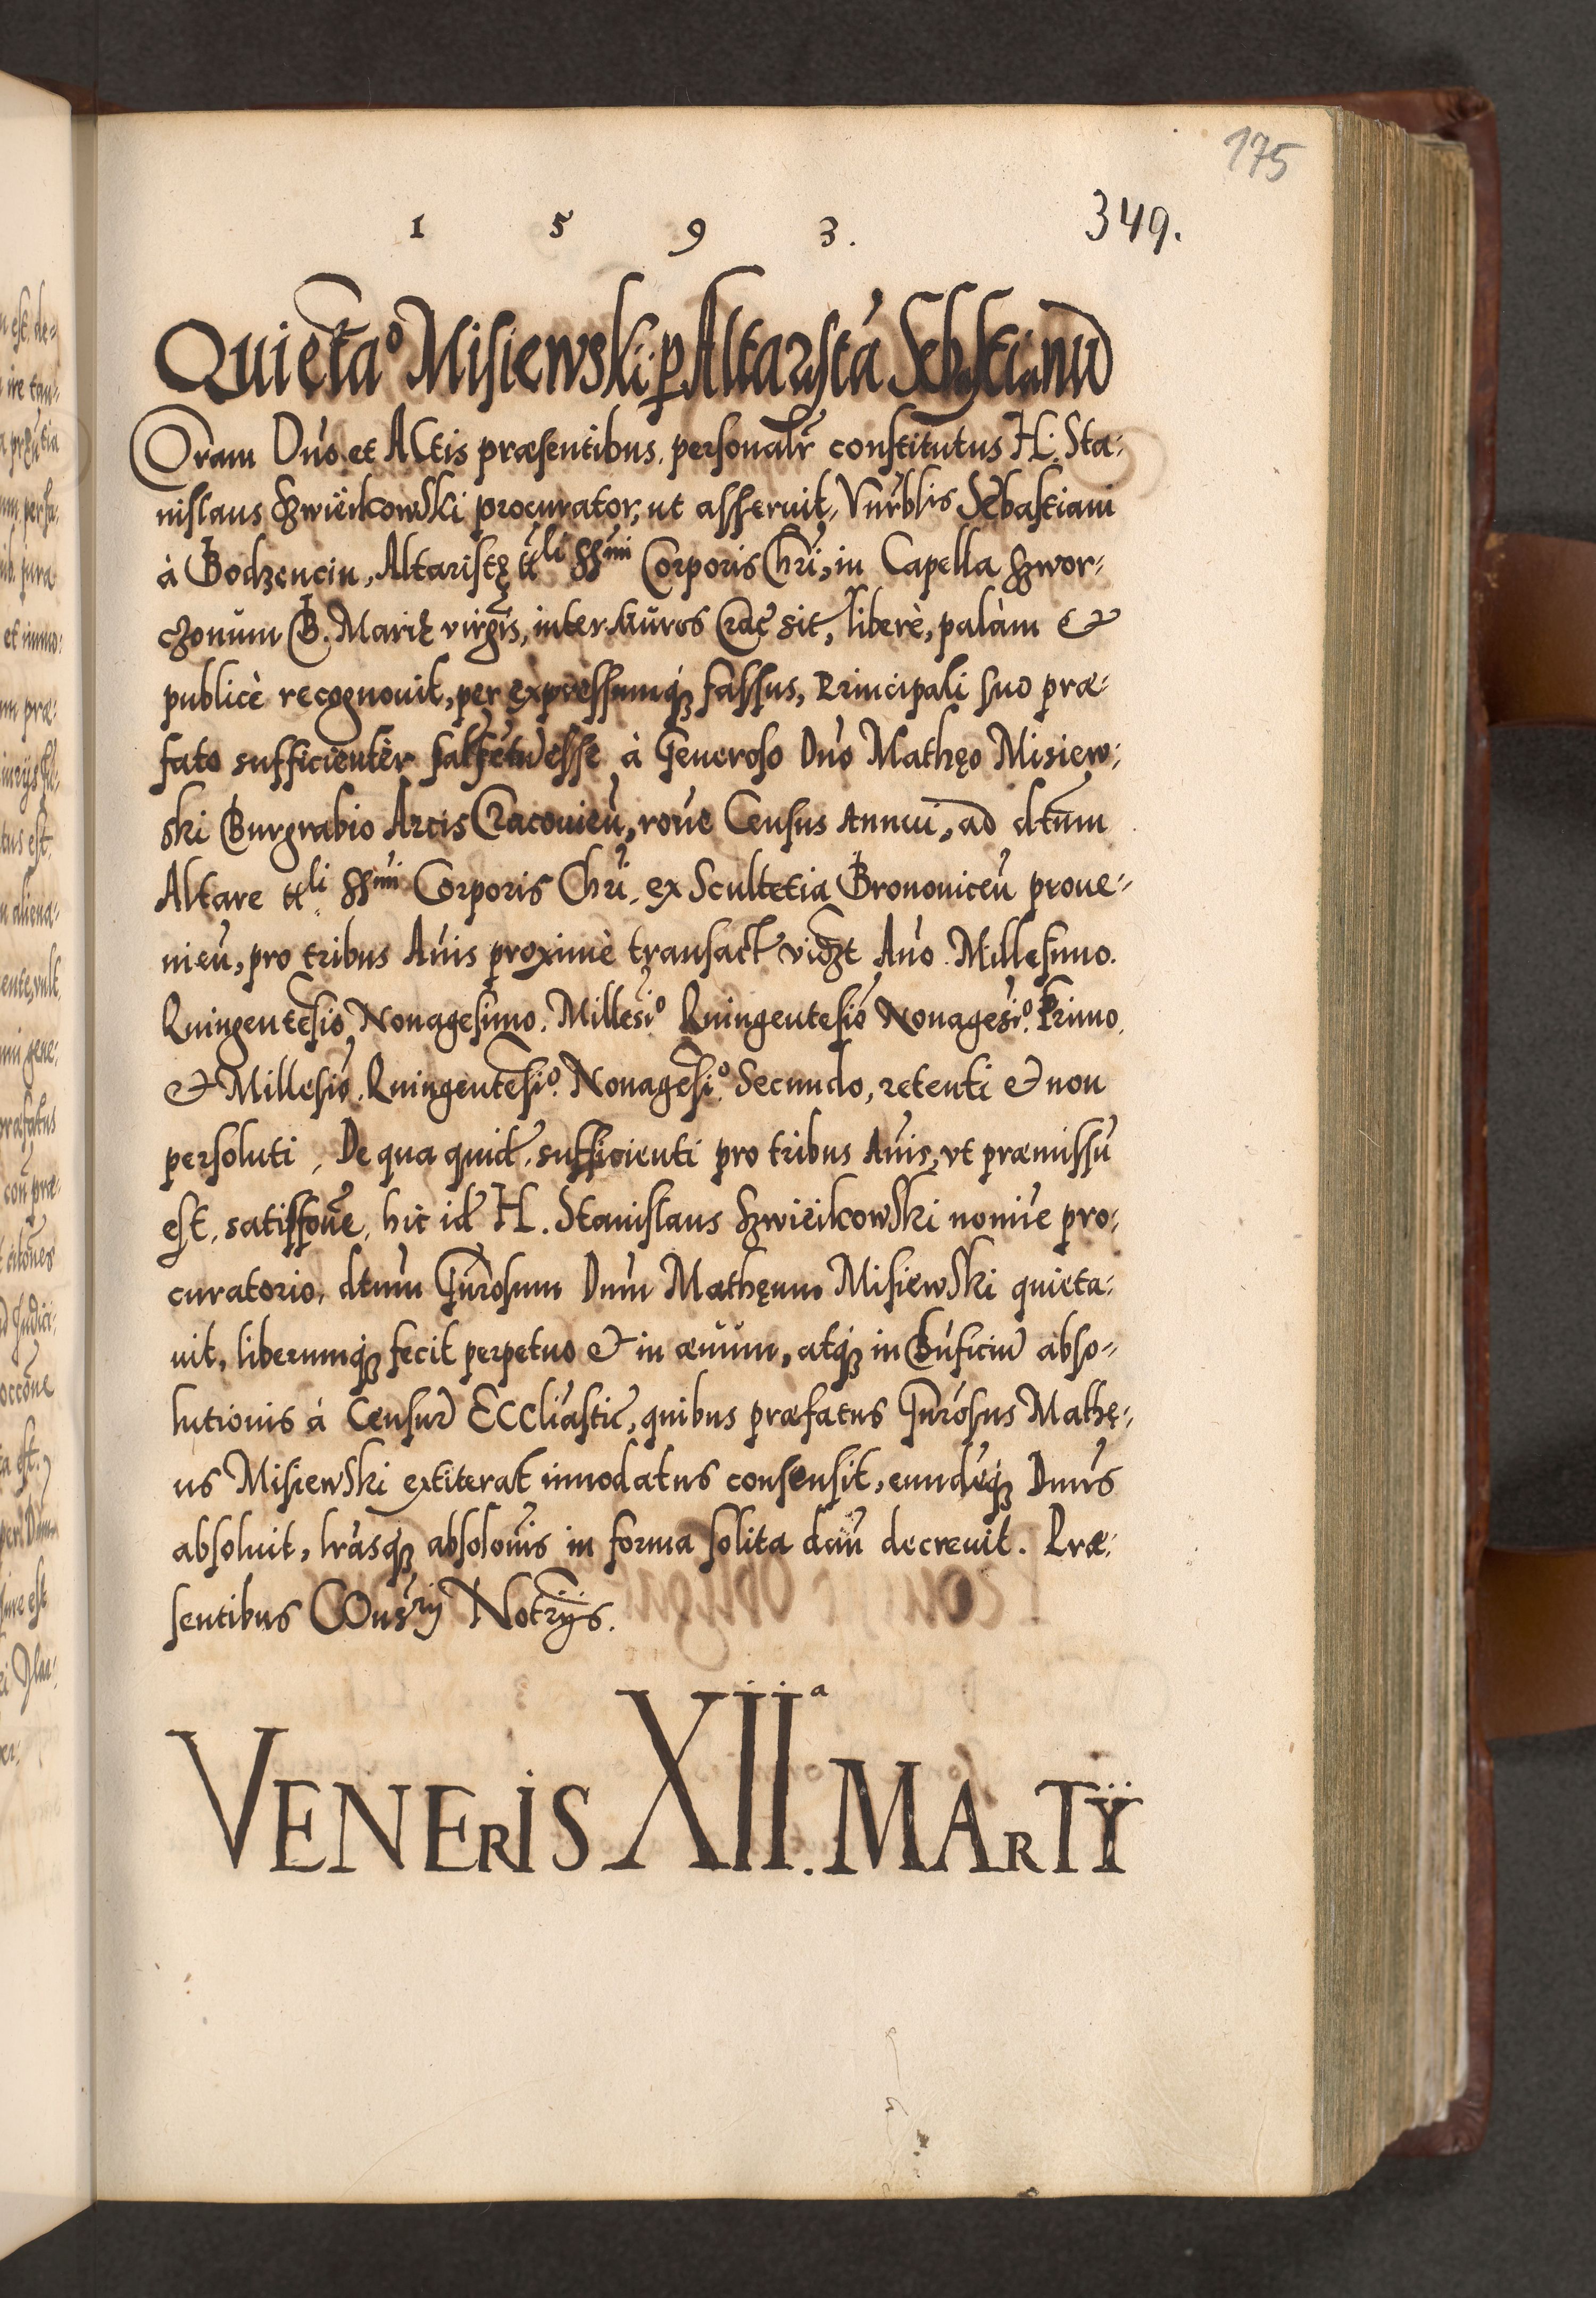 175
1 5 9 3.
349.
Quieta͠o Misiewski p Altaristá Sebastianu͠
Coram Dn̄o et Actis præsentibus, personalr̄ constitutus H. Sta-
nislaus Szwieikowski procurator, ut asseruit, Vnr̄blis Sebastiani
à Bodzencin, Altaristę ttli SSmi Corporis Chri͠, in Capella Szwor-
czonum B. Marię virgis͠, inter Muros Crac̄ sit, liberè, palàm &
publicè recognouit, per expressumq̨ fassus, Principali suo præ-
fato sufficientèr satisfctu͠ esse à Generoso Dn̄o Mathęo Misiew-
ski Burgrabio Arcis Cracouien̄, ron̄e Census annui, ad dtu͠m
Altare ttli SSmi Corporis Chri͠, ex Scultetia Bronouicen̄ proue-
nien̄, pro tribus An̄is proximè transact͠ vidzt An̄o Millesimo
Quingentesi͠o Nonagesimo. Millesi͠o Quingentesi͠o Nonagesi͠o. Primo
& Millesi͠o. Quingentesi͠o. Nonagesi͠o. Secundo, retenti & non
persoluti, De qua quid͠, sufficienti pro tribus An̄is, vt præmissu͠
est, satisfon̄e, hic id͠ H. Stanislaus Szwieikowski nomi͠e pro-
curatorio, dtum Gn̄rosum Dn̄m Mathęum Misiewski quieta-
uit, liberumq̨ fecit perpetuo & in æuum, atq̨ in Bn̄ficiu͠ abso-
lutionis à Censur͠ Eccli͠astic͠, quibus præfatus Gn̄rosus Mathę-
us Misiewski extiterat innodatus consensit, eundēq̨ Dn̄us
absoluit, lr̄asq̨ absolon̄is in forma solita dan̄ decreuit. Præ-
sentibus Consrij Notrijs.
VENERIS XIIa. MARTIJ